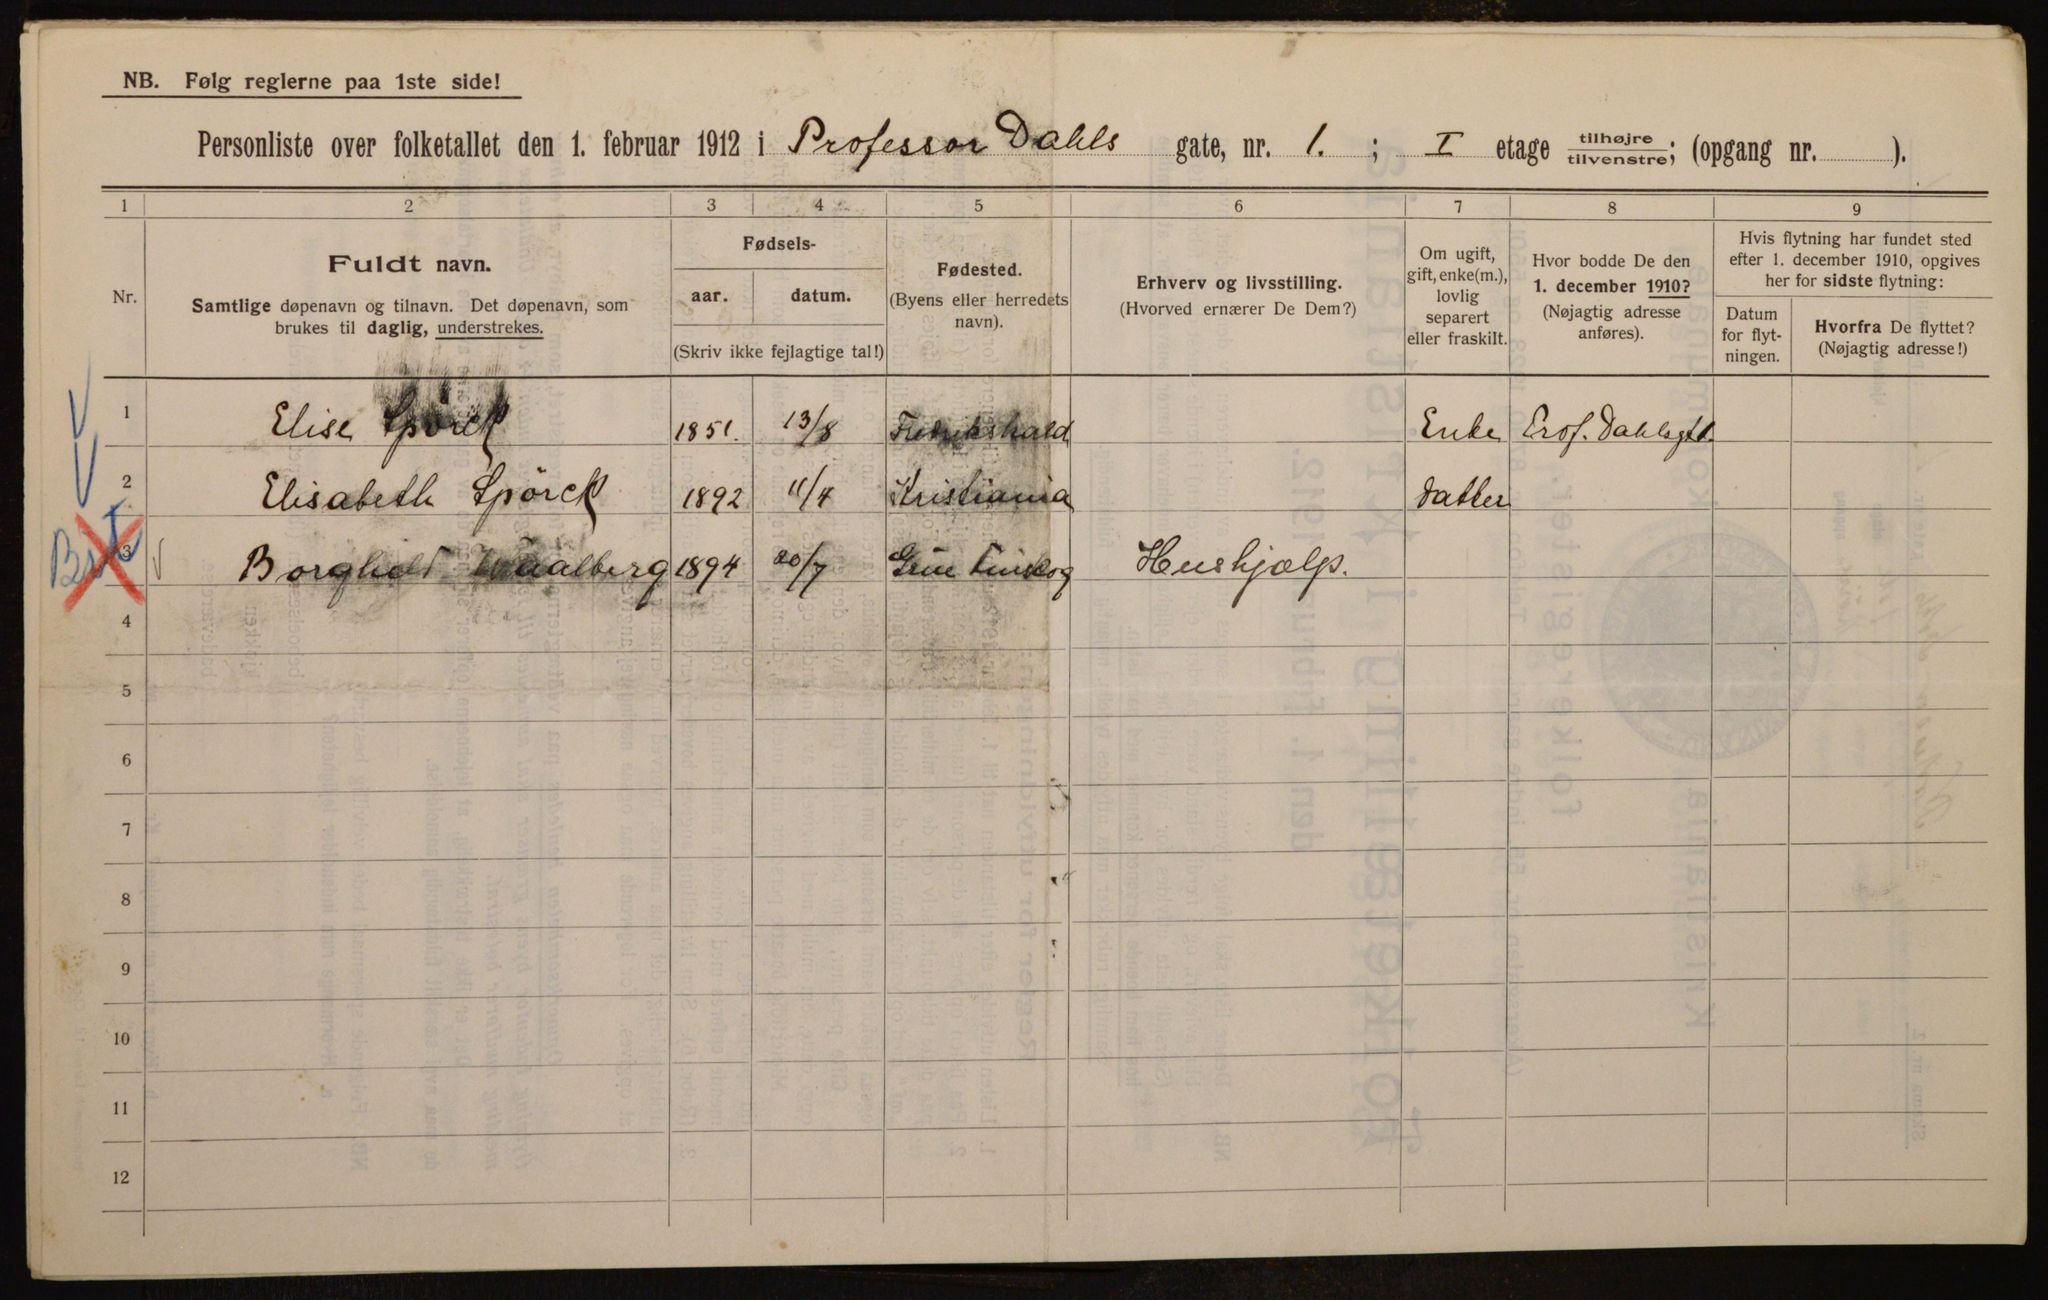 NB. Følg reglerne paa 1ste side!
Personliste over folketallet den 1. februar 1912 i Professor Dahls gate, nr. 1. ; I etage tilhøjre/tilvenstre; (opgang nr. ).
1 2 3 4 5 6 7 8 9
Nr.
Fuldt navn.
Samtlige døpenavn og tilnavn. Det døpenavn, som
brukes til daglig, understrekes.
Fødsels-
aar. datum.
(Skriv ikke fejlagtige tal!)
Fødested.
(Byens eller herredets
navn).
Erhverv og livsstilling.
(Hvorved ernærer De Dem?)
Om ugift,
gift, enke(m.),
lovlig
separert
eller fraskilt.
Hvor bodde De den
1. december 1910?
(Nøjagtig adresse
anføres).
Hvis flytning har fundet sted
efter 1. december 1910, opgives
her for sidste flytning:
Datum
for flyt-
ningen.
Hvorfra De flyttet?
(Nøjagtig adresse!)
1 Elise Spörck 1851. 13/8 Fredrikshald Enke Prof. Dahlsgt 1.
2 Elisabeth Spörck 1892 11/4 Kristiania datter
3 Borghild Waalberg 1894 20/7 Grue Finskog Hushjælp.
4
5
6
7
8
9
10
11
12